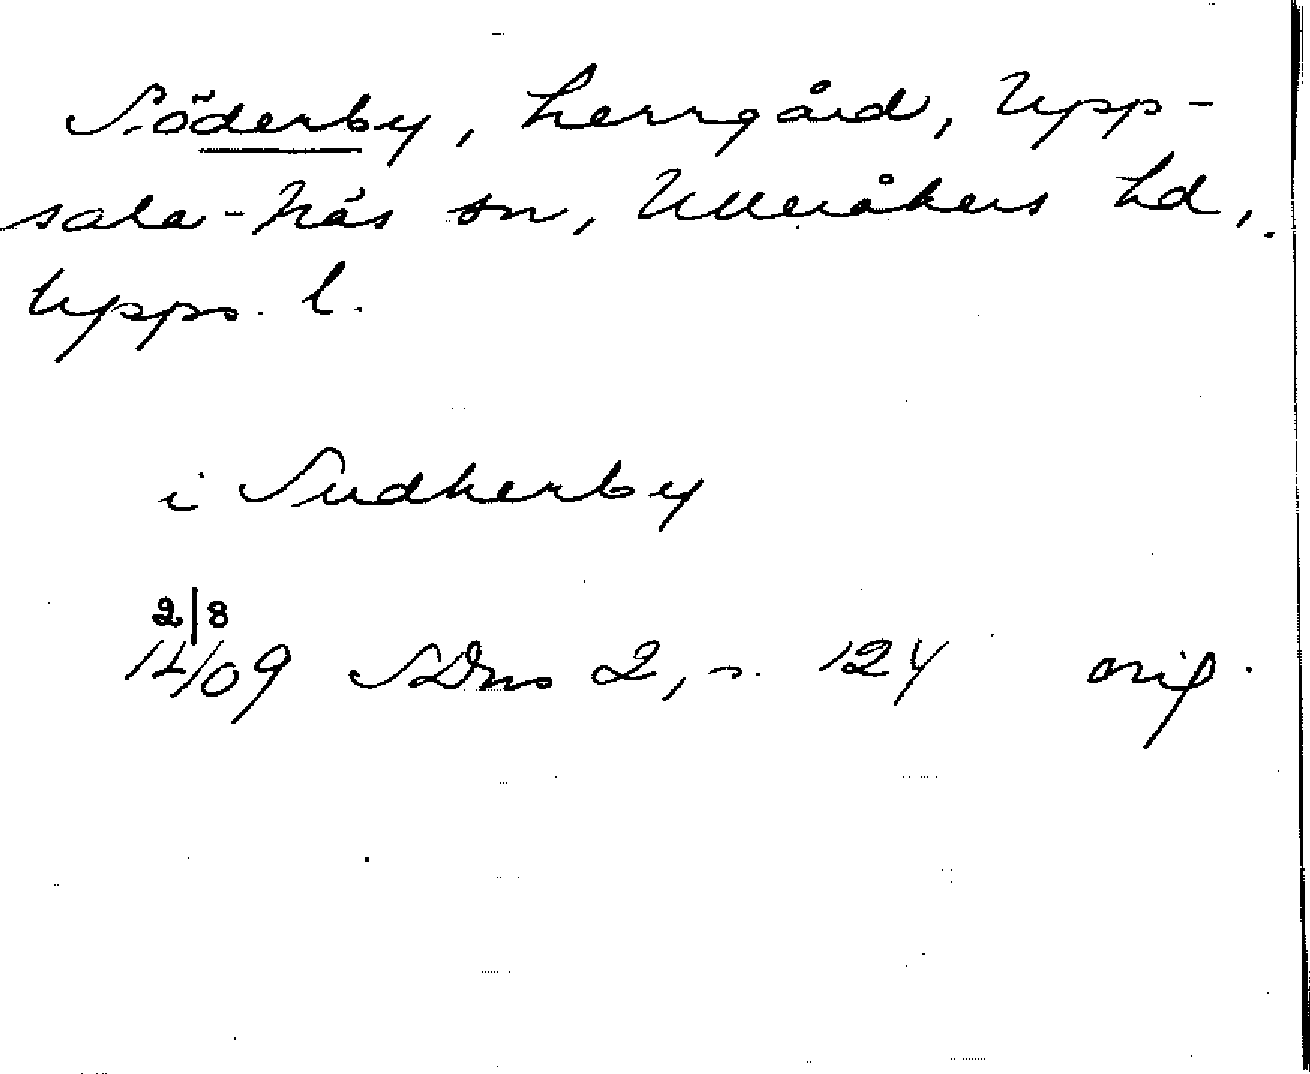 Söderby, herrgård, Upp-
sala-Näs sn, Ulleråkers hd,
Upps. l.
i Sudherby
2/8
14/09 SDns 2, s. 124 orig.